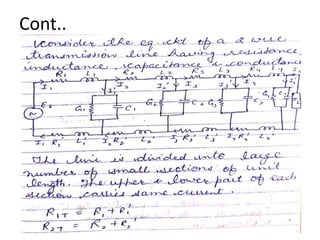 Cont..
Consider the eq ckt of a 2 wire
transmission line having resistance,
inductance, capacitance & conductance
R1 L1 R2 L2 R3 L3 R4 L4
I1 I2
E
G1 C1 G2 C2 G3 C3
The line is divided into large
number of small sections of unit
length. The upper & lower part of each
section carries same current.
R1T = R1+R1'
R2T = R2+R2'